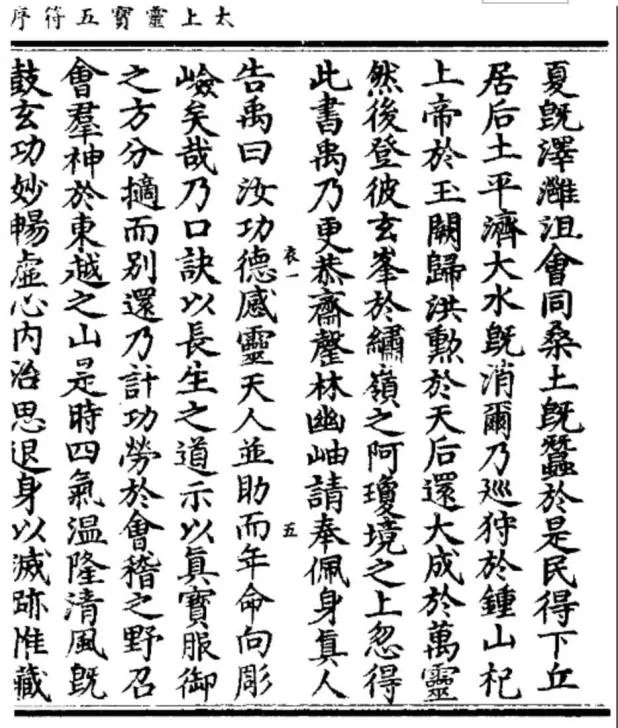 太上靈寶五符序
夏旣澤灉沮會同桑土旣蠶於是民得下丘
居后土平濟大水旣消爾乃巡狩於鍾山祀
上帝於玉闕歸洪勲於天后還大成於萬靈
然後登彼玄峯於繡嶺之阿瓊境之上忽得
此書禹乃更恭齋罄林幽岫請奉佩身真人
衮一
五
告禹曰汝功德感靈天人並助而年命向彫
嶮矣哉乃口訣以長生之道示以眞寶服御
之方分擿而別還乃計功勞於會稽之野召
會羣神於東越之山是時四氣温隆清風旣
鼓玄功妙暢虛心内治思退身以滅跡惟藏